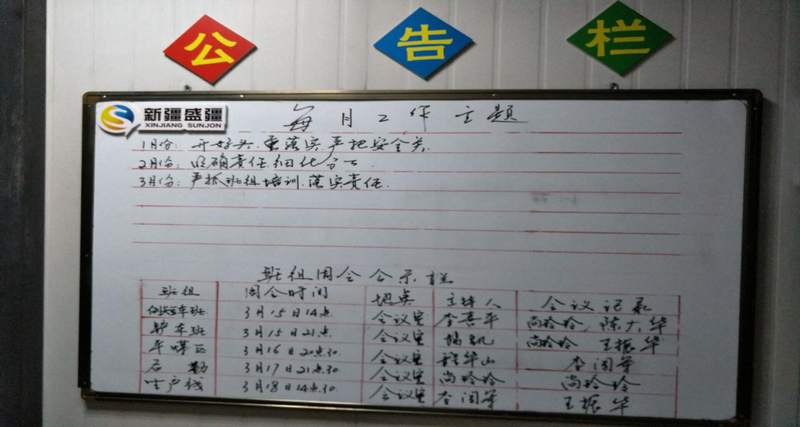 公告栏
新疆盛疆
XINJIANG SUNJON
每月工作主题
1月份：开好头.重落实严把安全关.
2月份：明确责任.细化分工
3月份：严抓班组培训.落实责任.
班组周会公示栏
班组 周会时间 地点 主持人 会议记录
车班 3月15日14点 会议室 李喜平 尚玲玲、陈大华
铲车班 3月15日21点 会议室 尚玲玲 王振华
3月16日20点30 会议室 华山 李闯军
后勤 3月17日21点30 会议室 尚玲玲 尚玲玲
生产线 3月18日14点30 会议室 李闯军 王振华